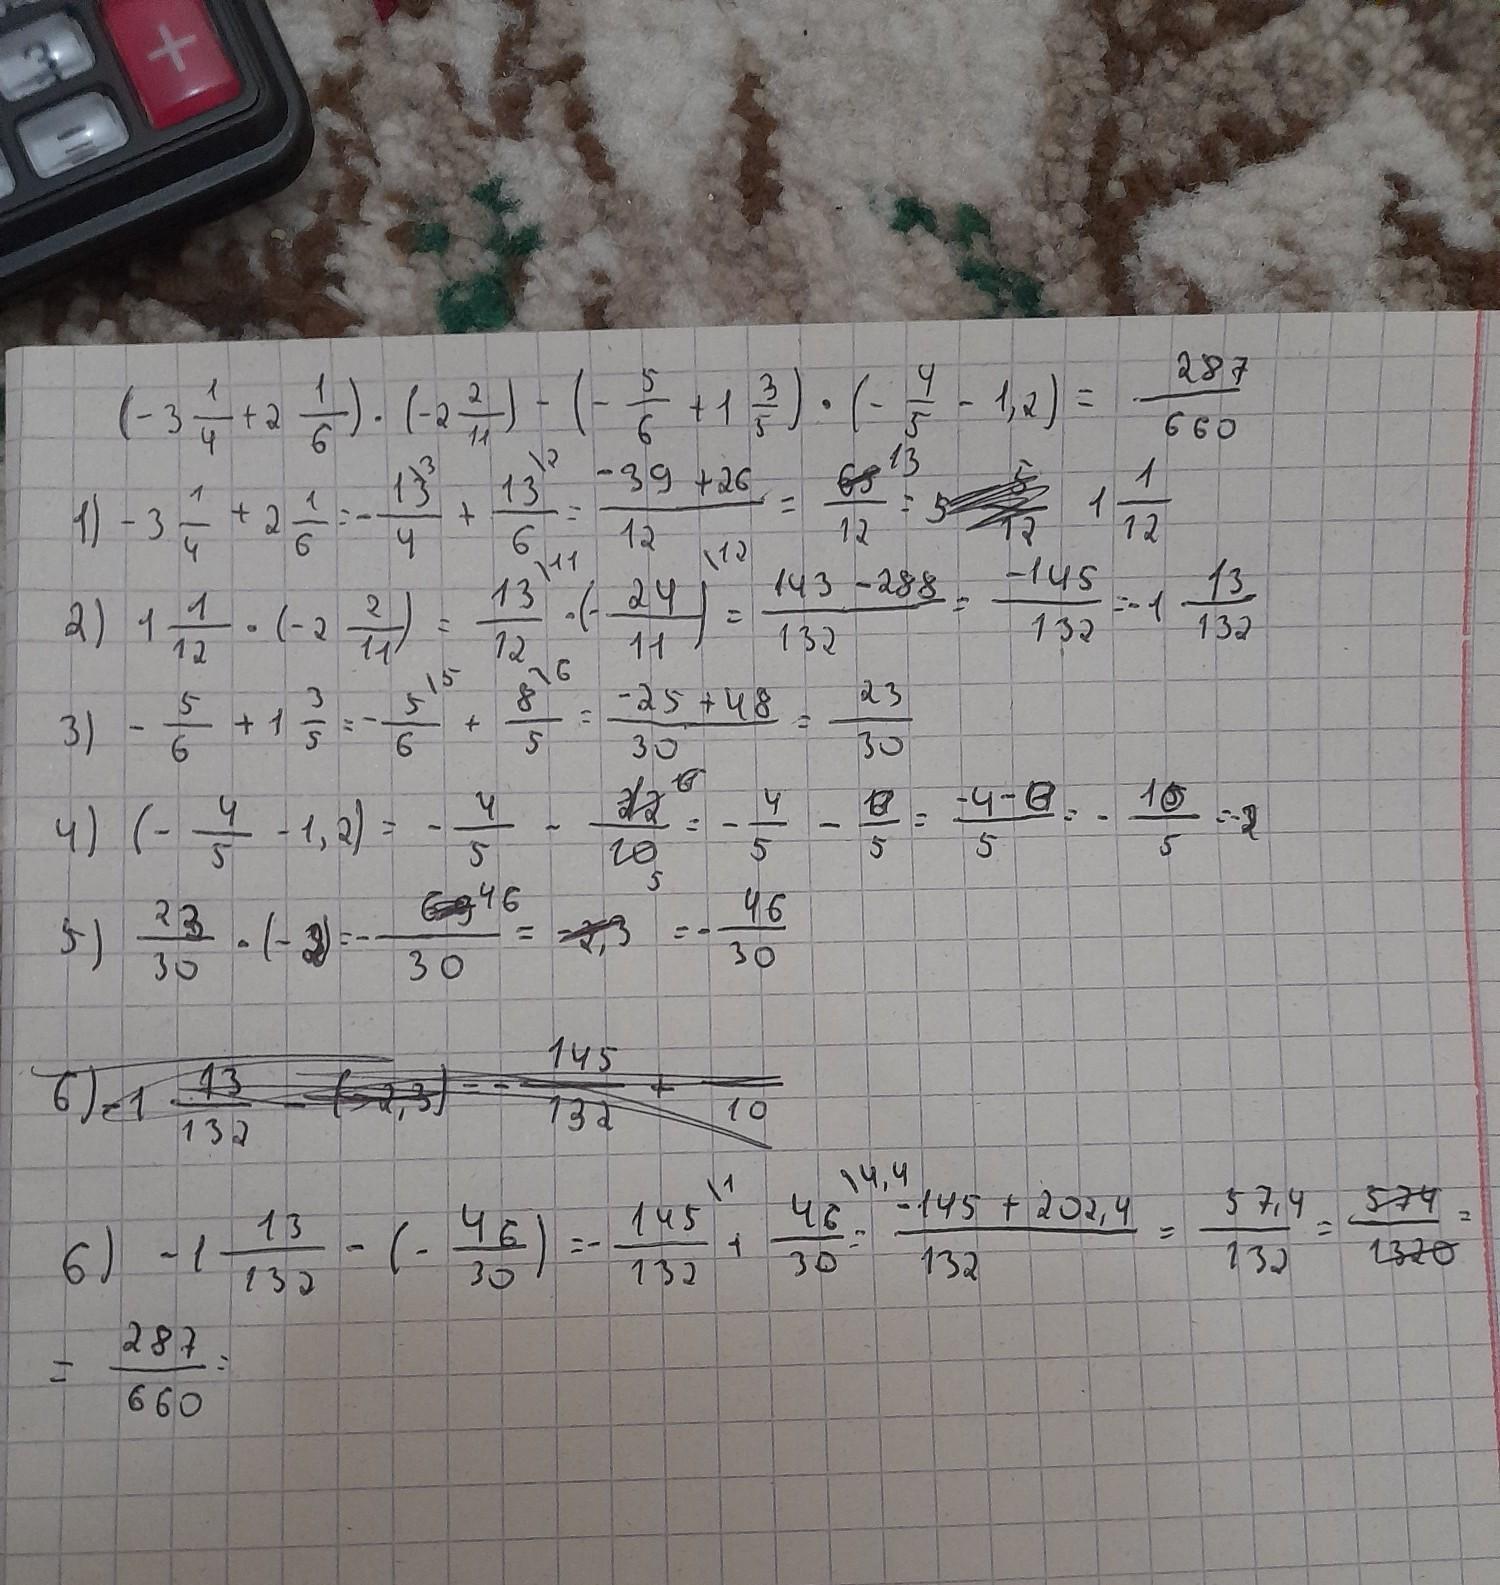 (-3 1/4 + 2 1/6) · (-2 2/11) - (-5/6 + 1 3/5) · (-4/5 - 1,2) = 287/660
1) -3 1/4 + 2 1/6 = -13\3/4 + 13\2/6 = -39 + 26/12 = 13/12 = 1 1/12
2) 1 1/12 · (-2 2/11) = 13\11/12 · (-24/11)\12 = 143 - 288/132 = -145/132 = -1 13/132
3) -5/6 + 1 3/5 = -5\5/6 + 8\6/5 = -25 + 48/30 = 23/30
4) (-4/5 - 1,2) = -4/5 - 12/10 5 = -4/5 - /5 = -4 - /5 = -10/5 = -2
5) 23/30 · (-2) = -46/30 = -2,3 = -46/30
6) -1 13/132 - (-2,3) = -145/132 + /10
6) -1 13/132 - (-46/30) = -145\1/132 + 46\4,4/30 = -145 + 202,4/132 = 57,4/132 = 574/1320 =
= 287/660 =